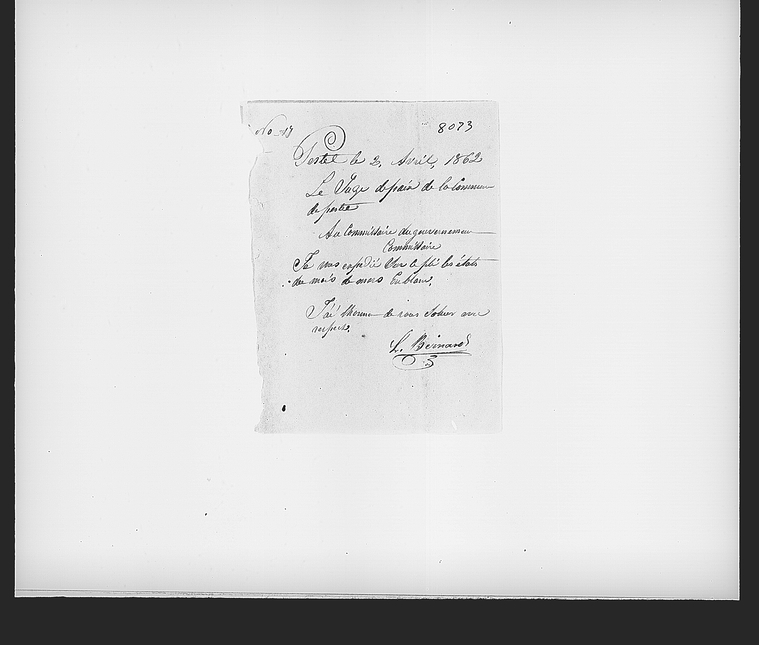 No 17
8073
Pestel le 2, Avril, 1862
Le Juge de paix de la Commune
de pestel
Au Commissaire du gouvernement
Commissaire
Je vous expédié sur ce pli les états
du mois de mars En blanc.
J'ai l'honneur de vous Saluer avec
respect.
L. Bernard